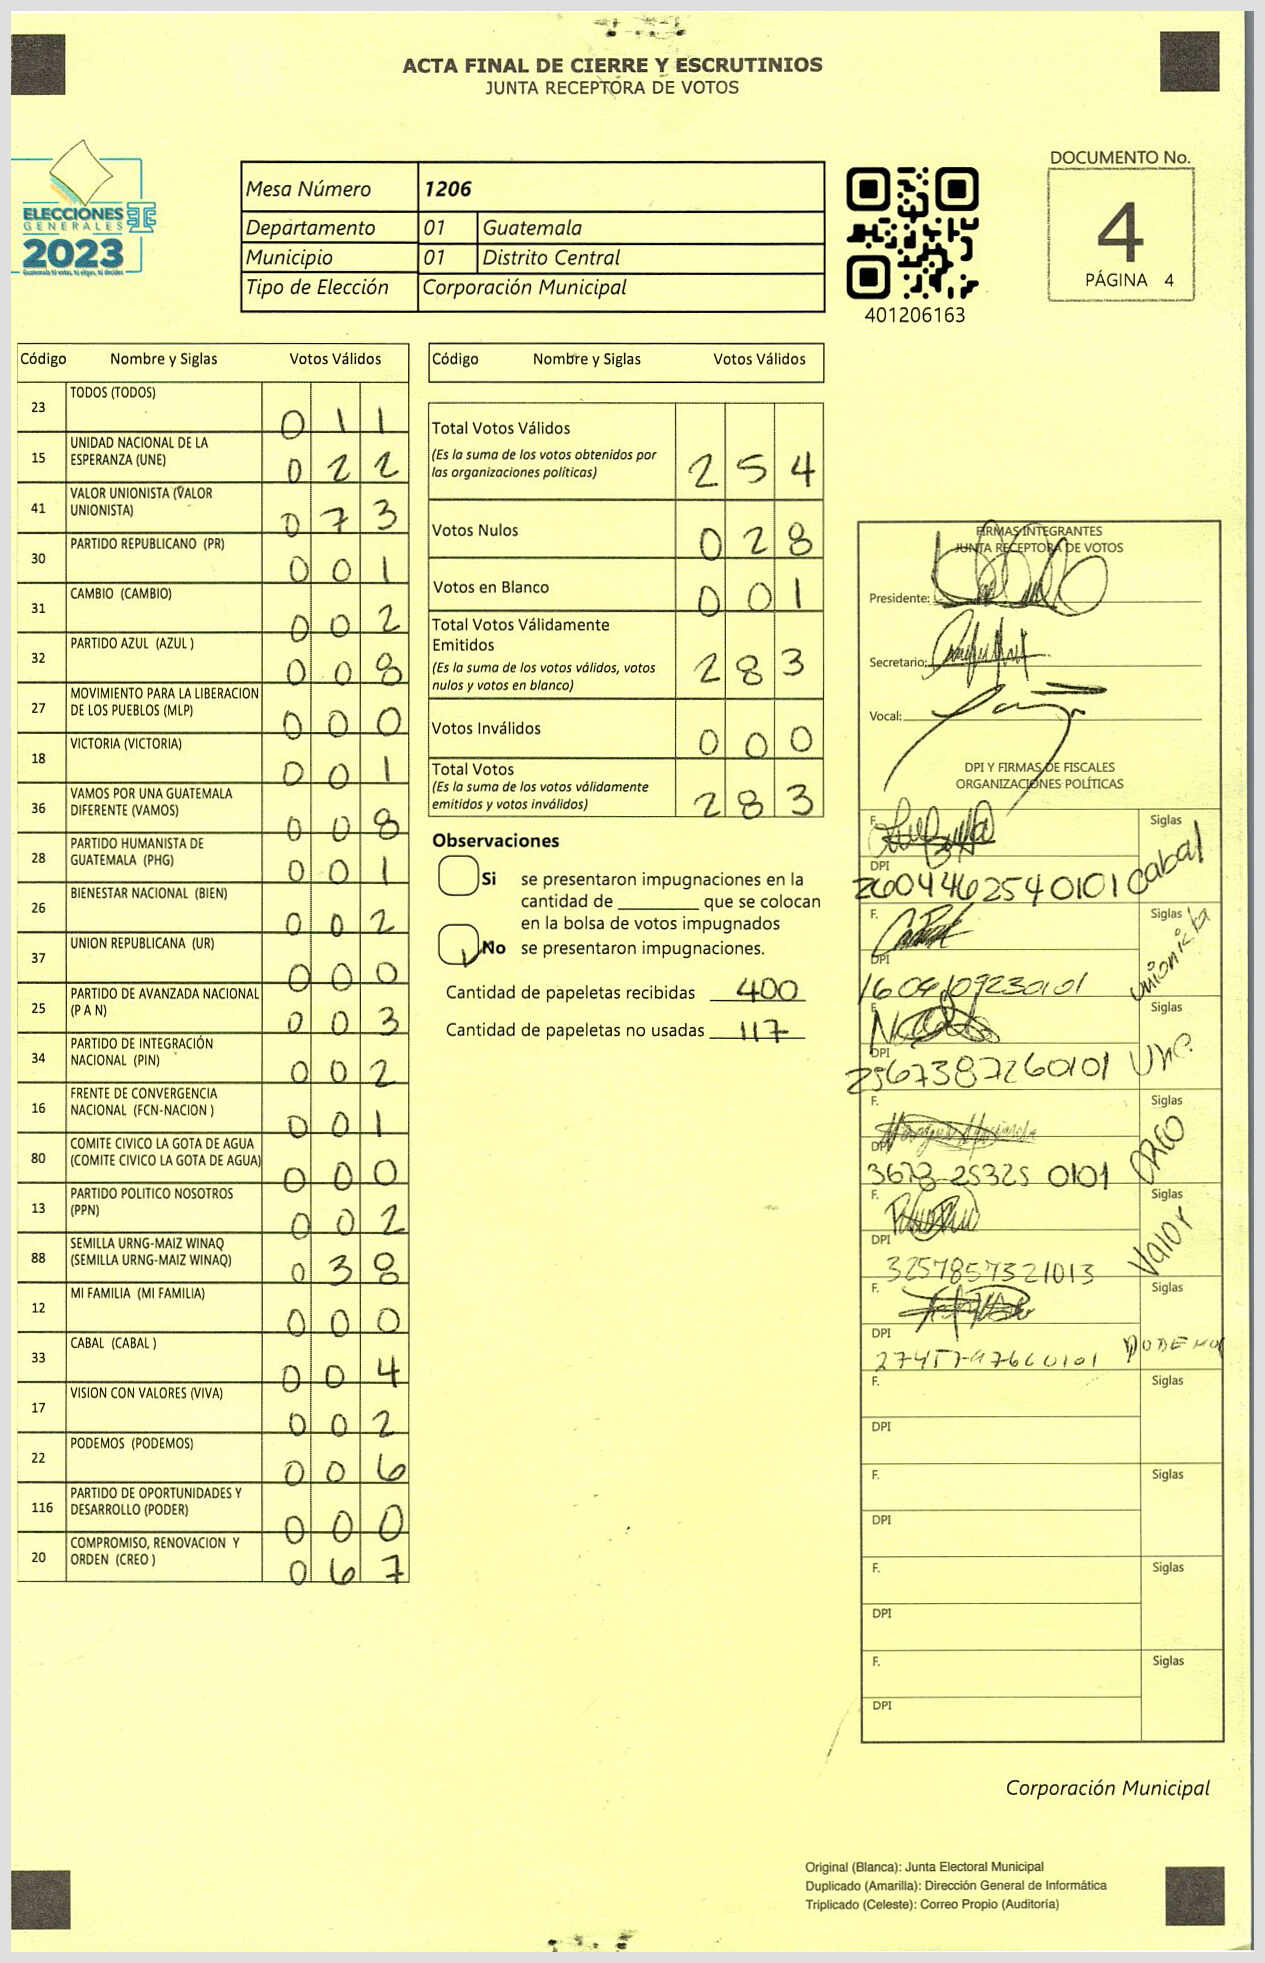 ACTA FINAL DE CIERRE Y ESCRUTINIOS
JUNTA RECEPTORA DE VOTOS
ELECCIONES
GENERALES
2023
Mesa Número 1206
Departamento 01 Guatemala
Municipio 01 Distrito Central
Tipo de Elección Corporación Municipal
401206163
DOCUMENTO No.
4
PÁGINA 4
Código Nombre y Siglas Votos Válidos
23 TODOS (TODOS) 011
15 UNIDAD NACIONAL DE LA ESPERANZA (UNE) 022
41 VALOR UNIONISTA (VALOR UNIONISTA) 073
30 PARTIDO REPUBLICANO (PR) 001
31 CAMBIO (CAMBIO) 002
32 PARTIDO AZUL (AZUL ) 008
27 MOVIMIENTO PARA LA LIBERACION DE LOS PUEBLOS (MLP) 000
18 VICTORIA (VICTORIA) 001
36 VAMOS POR UNA GUATEMALA DIFERENTE (VAMOS) 008
28 PARTIDO HUMANISTA DE GUATEMALA (PHG) 001
26 BIENESTAR NACIONAL (BIEN) 002
37 UNION REPUBLICANA (UR) 000
25 PARTIDO DE AVANZADA NACIONAL (P A N) 003
34 PARTIDO DE INTEGRACIÓN NACIONAL (PIN) 002
16 FRENTE DE CONVERGENCIA NACIONAL (FCN-NACION ) 001
80 COMITE CIVICO LA GOTA DE AGUA (COMITE CIVICO LA GOTA DE AGUA) 000
13 PARTIDO POLITICO NOSOTROS (PPN) 002
88 SEMILLA URNG-MAIZ WINAQ (SEMILLA URNG-MAIZ WINAQ) 038
12 MI FAMILIA (MI FAMILIA) 000
33 CABAL (CABAL ) 004
17 VISION CON VALORES (VIVA) 002
22 PODEMOS (PODEMOS) 006
116 PARTIDO DE OPORTUNIDADES Y DESARROLLO (PODER) 000
20 COMPROMISO, RENOVACION Y ORDEN (CREO ) 067
Código Nombre y Siglas Votos Válidos
Total Votos Válidos 254
(Es la suma de los votos obtenidos por
las organizaciones políticas)
Votos Nulos 028
Votos en Blanco 001
Total Votos Válidamente
Emitidos 283
(Es la suma de los votos válidos, votos
nulos y votos en blanco)
Votos Inválidos 000
Total Votos 283
(Es la suma de los votos válidamente
emitidos y votos inválidos)
Observaciones
Si se presentaron impugnaciones en la
cantidad de ________ que se colocan
en la bolsa de votos impugnados
No se presentaron impugnaciones.
Cantidad de papeletas recibidas 400
Cantidad de papeletas no usadas 117
FIRMAS INTEGRANTES
JUNTA RECEPTORA DE VOTOS
Presidente:
Secretario:
Vocal:
DPI Y FIRMAS DE FISCALES
ORGANIZACIONES POLÍTICAS
F. Siglas
DPI 2604462540101 Cabal
F. Siglas
DPI Unionista
F. Siglas
DPI 2567387260101 UNE
F. Siglas
DPI 3673 25325 0101
F. Siglas
DPI 3257857321013 Valor
F. Siglas
DPI PODEMOS
F. Siglas
DPI
F. Siglas
DPI
F. Siglas
DPI
F. Siglas
DPI
Corporación Municipal
Original (Blanca): Junta Electoral Municipal
Duplicado (Amarilla): Dirección General de Informática
Triplicado (Celeste): Correo Propio (Auditoría)